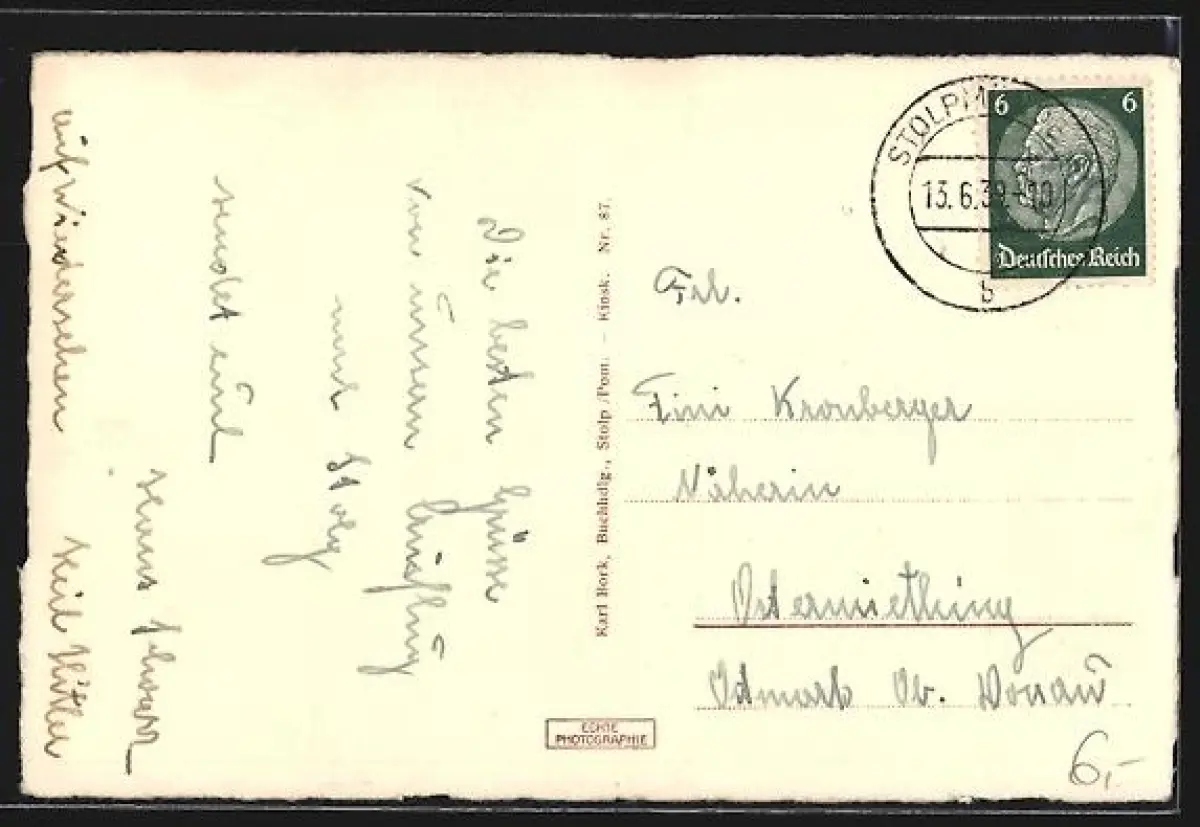 Die besten Grüsse
von unsern Ausflug
nach Stolp
sendet euch
Hans
auf Wiedersehen
Heil Hitler
Karl Bork, Buchhdlg., Stolp /Pom. – Kinsk. Nr. 87.
ECHTE
PHOTOGRAPHIE
STOLPM
13.6.39.-10
b
6 6
Deutsches Reich
Frl.
Fini Kronberger
Näherin
Ostermiething
Ostmark Ob. Donau
6,-